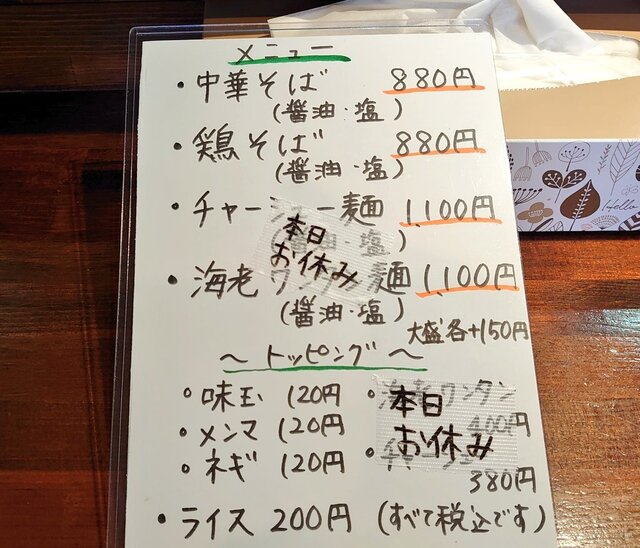 メニュー
・中華そば 880円
(醤油・塩)
・鶏そば 880円
(醤油・塩)
・チャーシュー麺 1,100円
(醤油・塩)
本日
お休み
・海老ワンタン麺 1,100円
(醤油・塩)
大盛各+150円
～トッピング～
・味玉 120円
・メンマ 120円
・ネギ 120円
・海老ワンタン
400円
本日
お休み
380円
・ライス 200円 (すべて税込です)
Hello